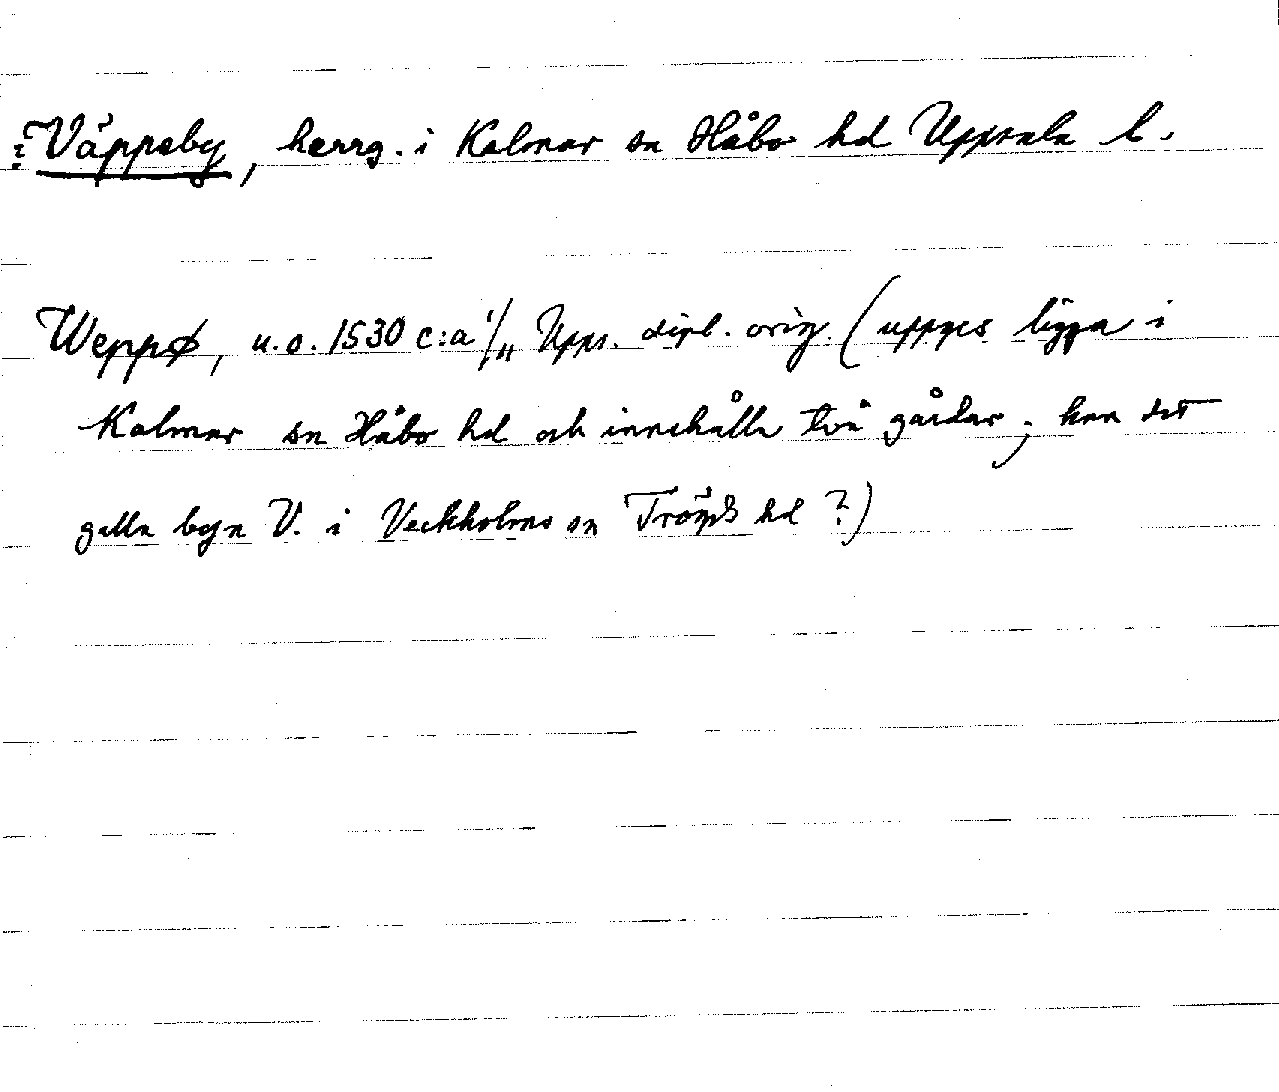 ? Väppeby, herrg. i Kalmar sn Håbo hd Uppsala l.
Weppø, u.o. 1530 c:a 1/11 Upps. dipl. orig. (uppges ligga i
Kalmar sn Håbo hd och innehålla två gårdar; kan det
gälla byn V. i Veckholms sn Trögds hd ?)